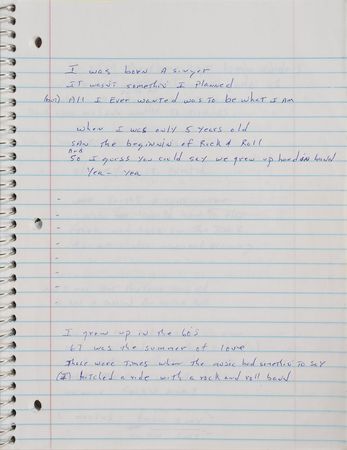 I was born A singer
IT wasn't somethin' I planned
(but) All I Ever wanted was to be what I Am
when I was only 5 years old
SAw The beginnin of Rock & Roll
And
So I guess you could say we grew up hand in hand
Yea - yea
-
-
-
-
-
-
-
I grew up in the 60's
IT was the summer of love
There were Times when the music had somethin to SAY
(I) hitched a ride with a rock and roll band